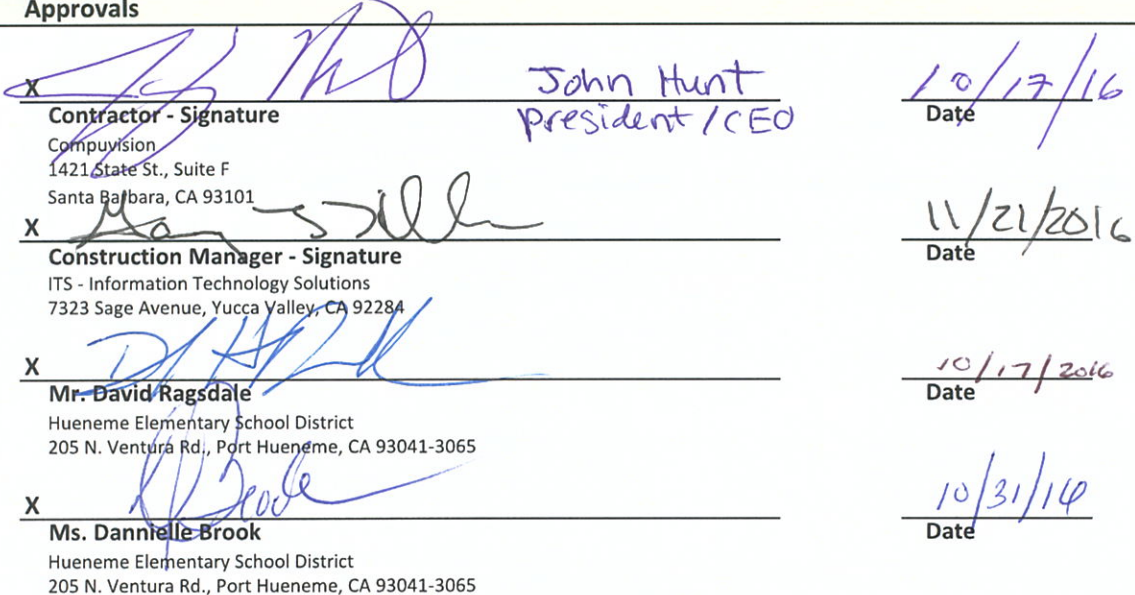 Approvals
X John Hunt 10/17/16
Contractor - Signature President / CEO Date
Compuvision
1421 State St., Suite F
Santa Barbara, CA 93101
X 11/21/2016
Construction Manager - Signature Date
ITS - Information Technology Solutions
7323 Sage Avenue, Yucca Valley, CA 92284
X 10/17/2016
Mr. David Ragsdale Date
Hueneme Elementary School District
205 N. Ventura Rd., Port Hueneme, CA 93041-3065
X DBrook 10/31/16
Ms. Dannielle Brook Date
Hueneme Elementary School District
205 N. Ventura Rd., Port Hueneme, CA 93041-3065